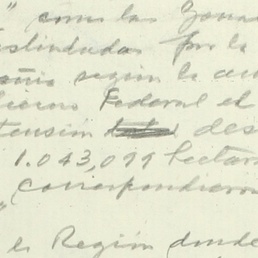 " como las Zonas
deslindadas por la
según la
Federal el
tensión des
1.043,099 hectar
correspondieron
"
es Región donde